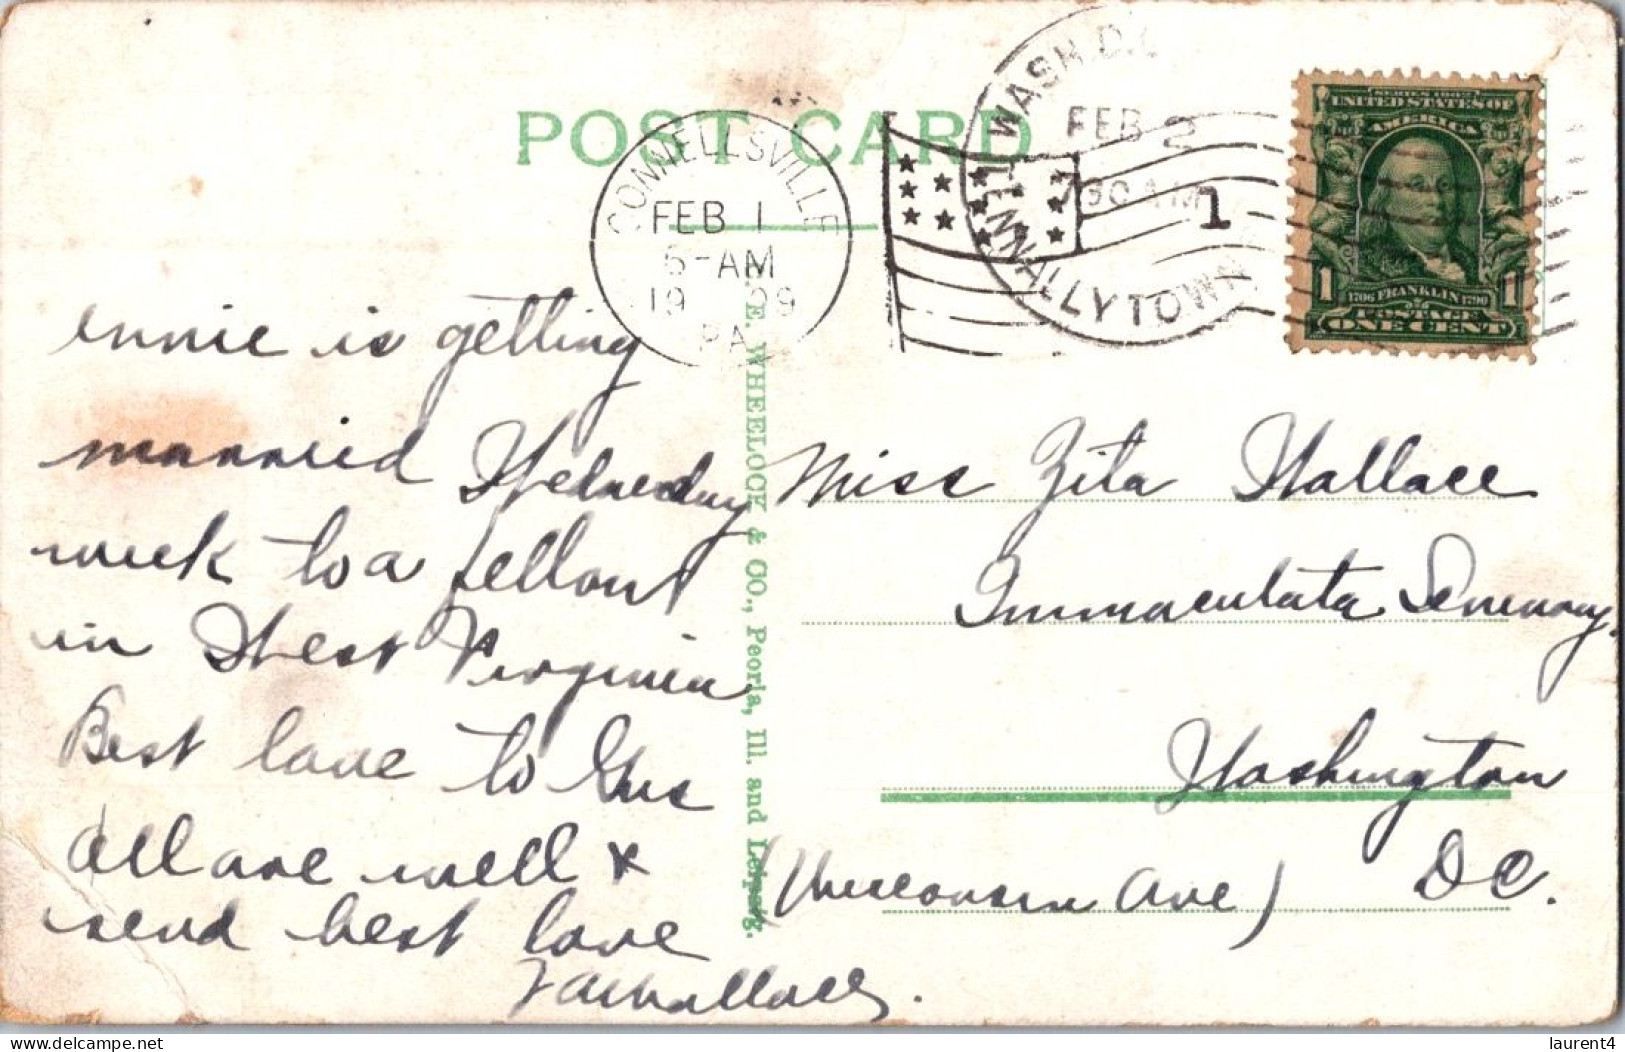 POST CARD
CONNELLSVILLE
FEB 1
5-AM
1909
PA.
WASH. D.C.
FEB 2
730 AM
TENNALLYTOWN
1
SERIES 1902
UNITED STATES OF
AMERICA
1706 FRANKLIN 1790
1 1
POSTAGE
ONE CENT
ennie is getting
married Wednesday
week to a fellow
in West Virginia
Best love to Gus
All are well &
send best love
Wallace.
E. WHEELOCK & CO., Peoria, Ill. and Leipzig.
Miss Zita Wallace
Immaculata Seminary.
Washington
D C.
(Wisconsin Ave)
laurent4